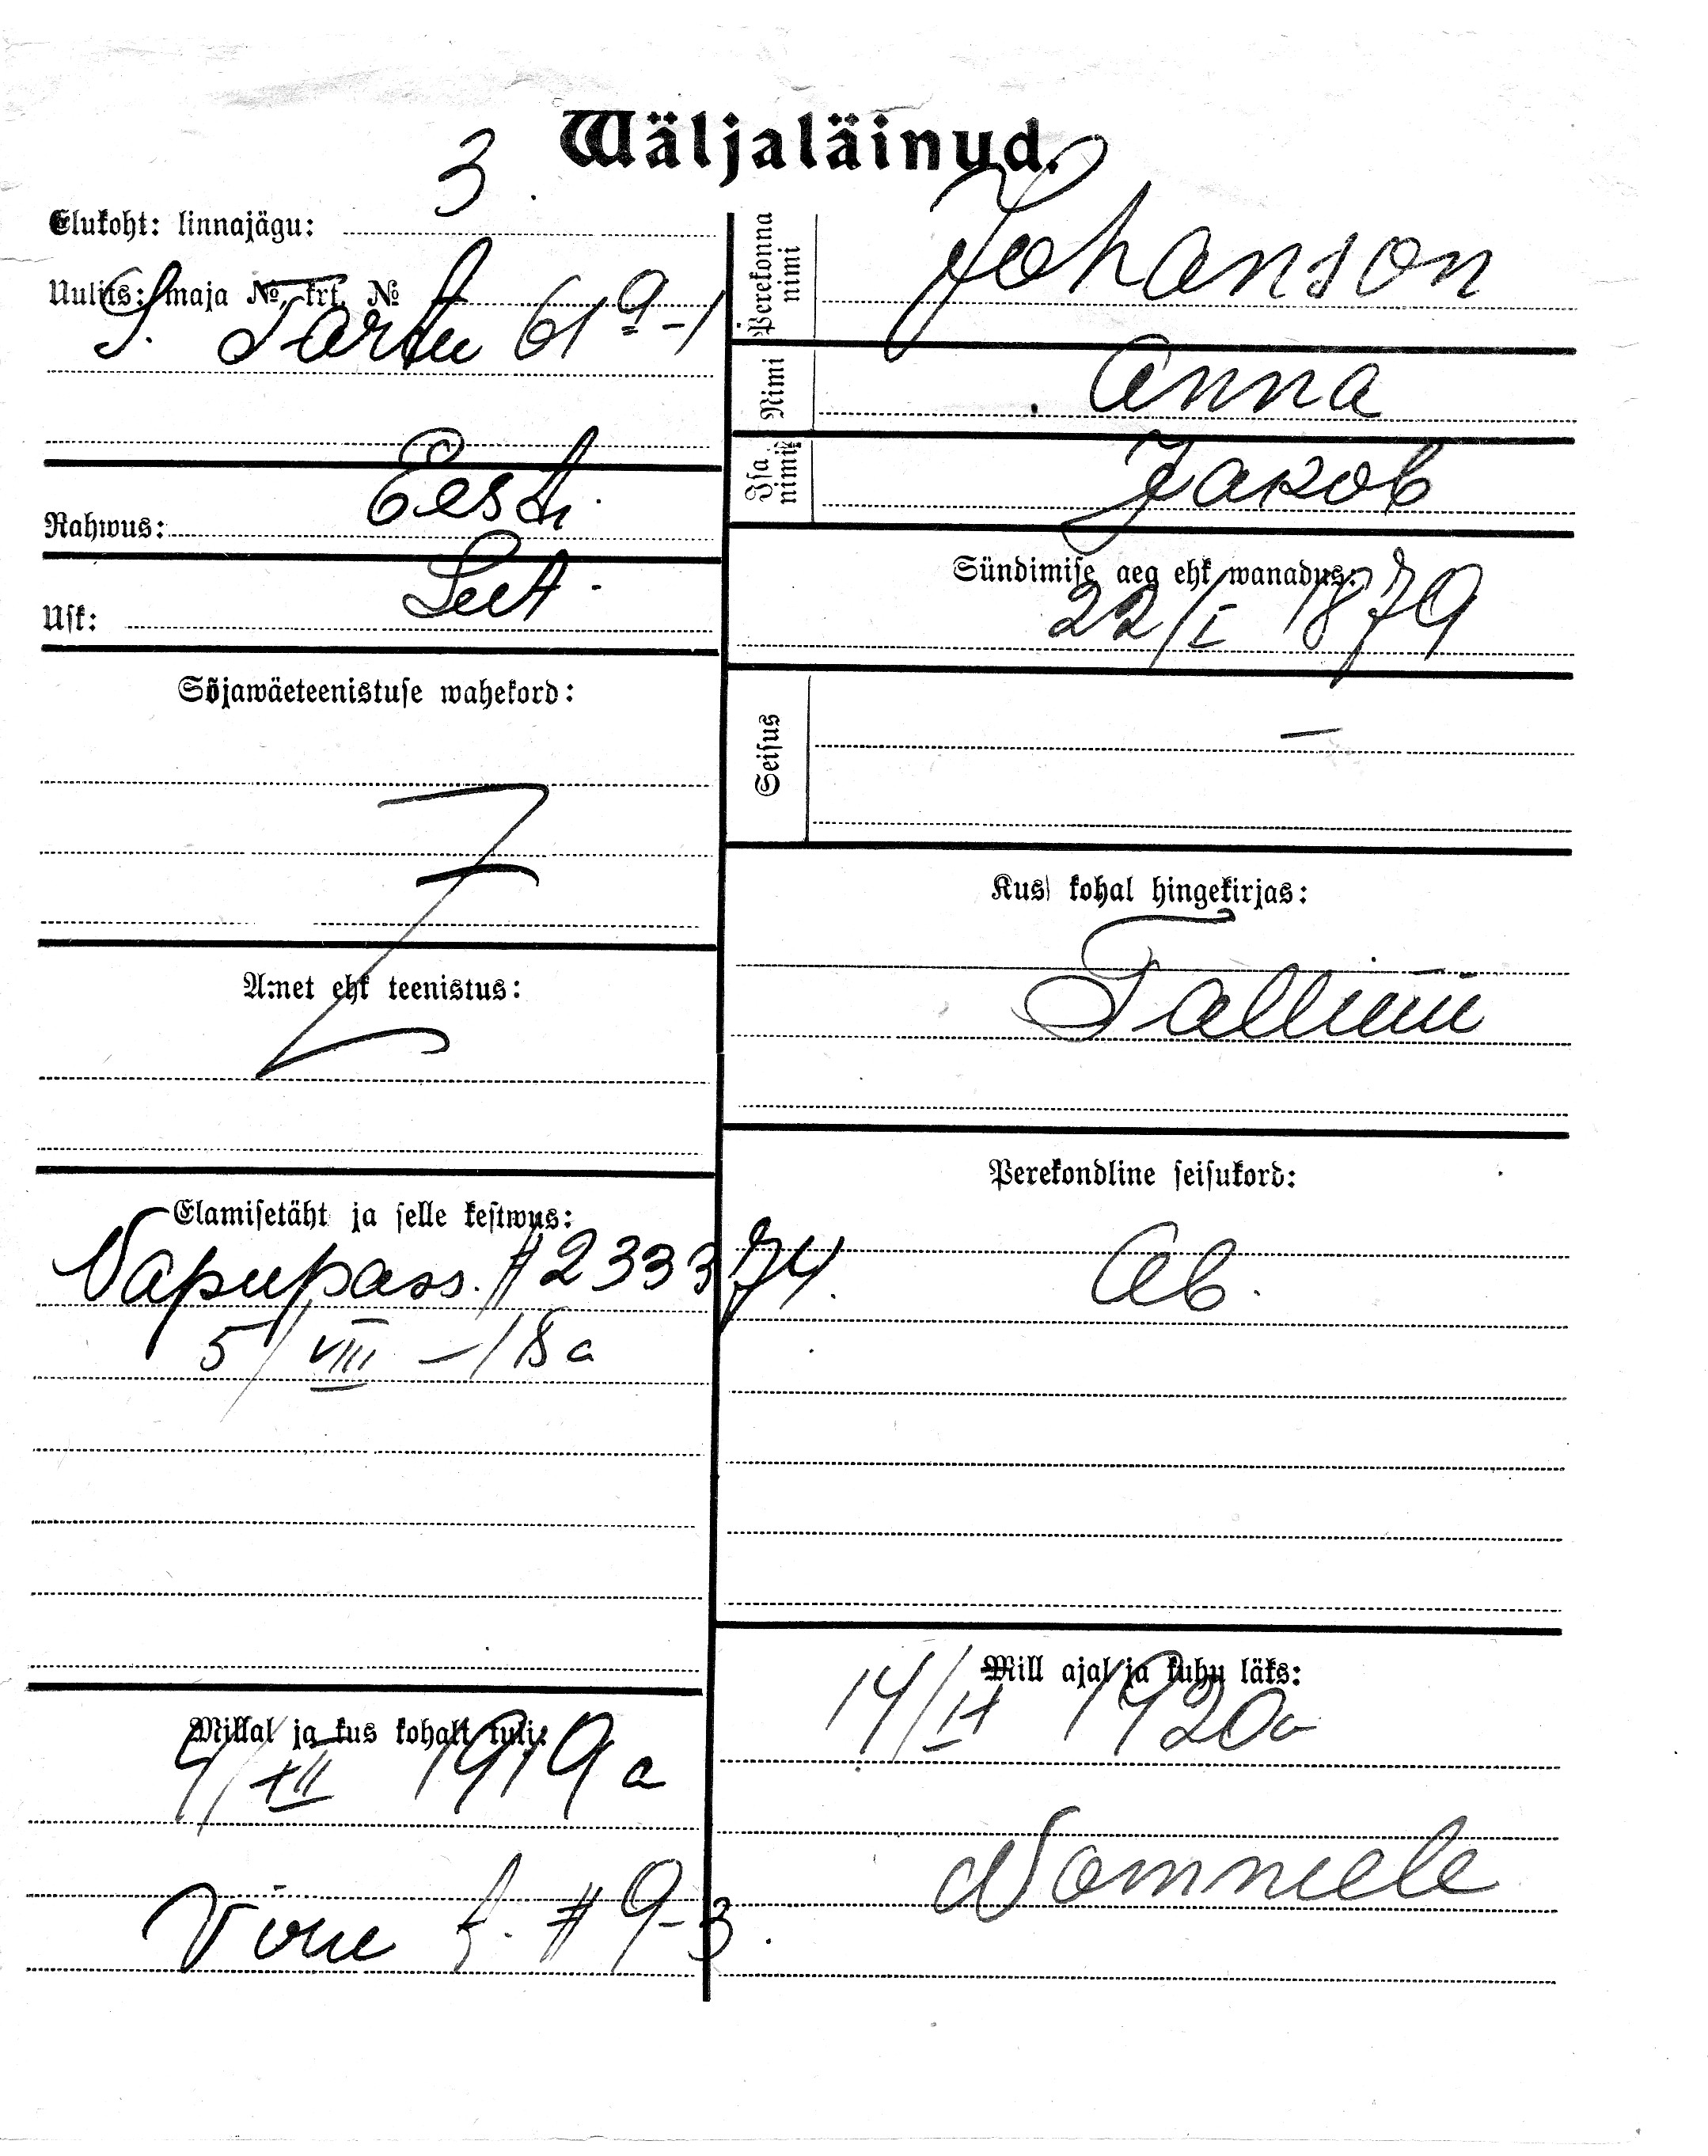 Wäljaläinud.
Elukoht: linnajägu: 3.
Uulits: maja № krt. №
S. Tartu 61ª-1
Rahwus: Eesti
Usk: Lutt.
Sõjawäeteenistuse wahekord:
Amet ehk teenistus:
Elamisetäht ja selle kestwus:
Vapupass. # 233374.
5/VIII – 18 a
Millal ja kus kohalt tuli:
4/XII 1919 a
Viru t. # 9-3.
Perekonna nimi Johanson
Nimi Anna
Isa nimi Jakob
Sündimise aeg ehk wanadus:
22/I 1879
Seisus –
Kus kohal hingekirjas:
Tallinn
Perekondline seisukord:
Ab.
Mill ajal ja kuhu läks:
14/IX 1920 a
Nommele